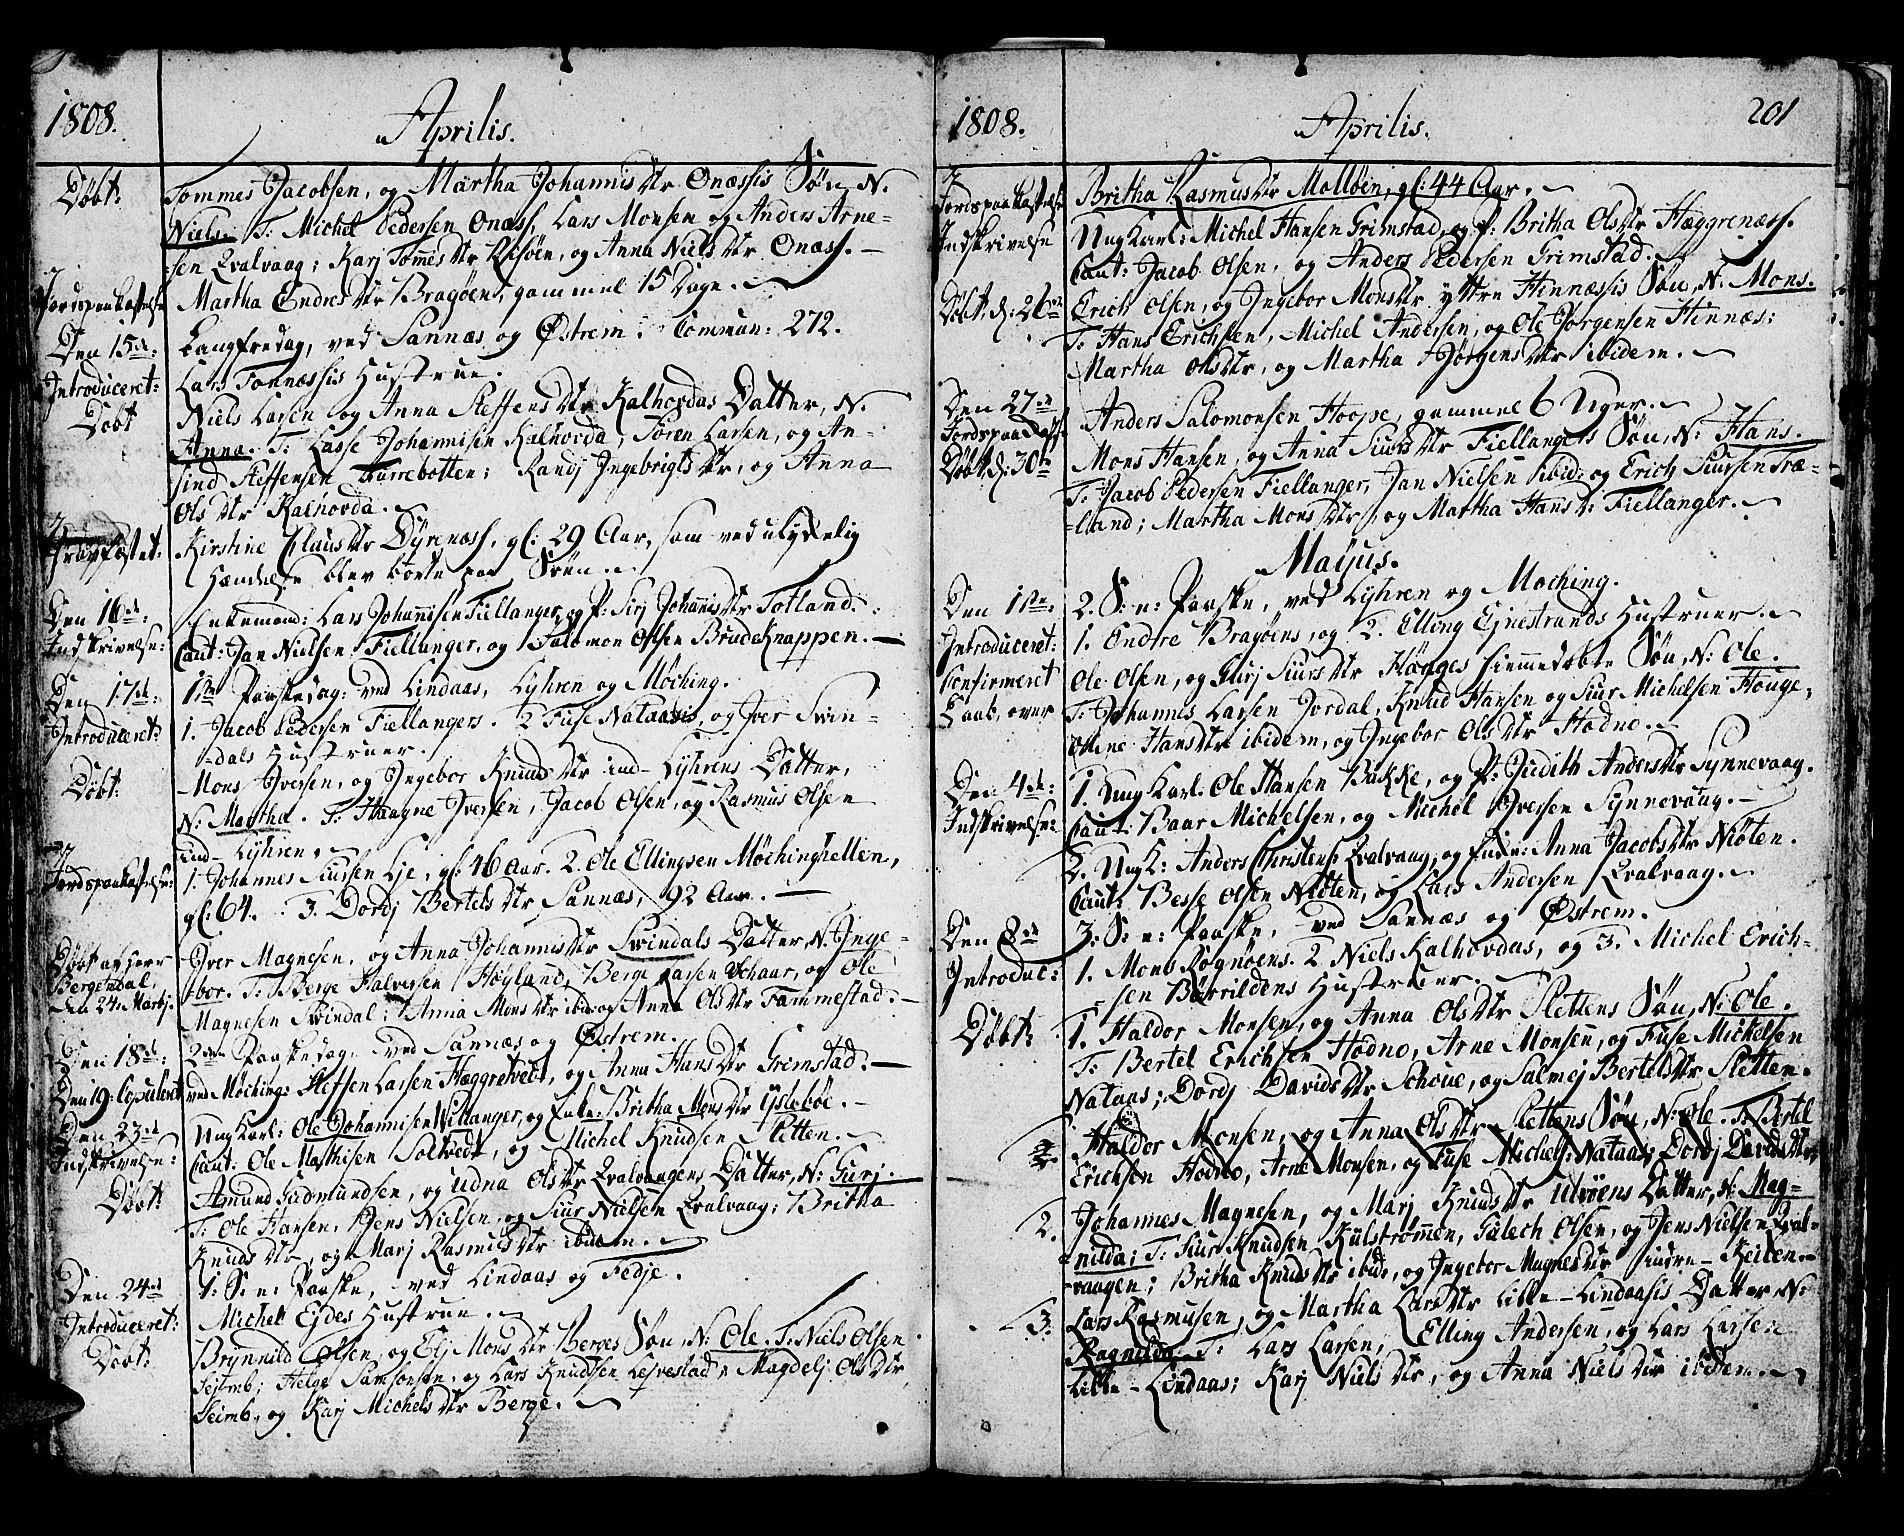 1808. Aprilis.
Döbt: Tommes Jacobsen, og Martha Johannisdtr Onæssis Søn, N.
Niels. T: Michel Pedersen Onæss, Lars Monsen og Anders Arne-
sen Qvalvaag; Karj Tommesdtr Risøen, og Anna Nielsdtr Onæss. —
Jordspaakastelse Martha Endresdtr Bragøen, gammel 15 Dage.
Den 15de: Langfredag, ved Sannæs og Østrem: Commun: 272.
Introduceret: Lars Fonnæssis Hustrue.
Döbt Niels Larsen og Anna Steffensdtr Kalhovdas Datter, N.
Anna. T: Lasse Johannisen Kalhovda, Søren Larsen, og An-
sind Steffensen; Randj Ingebrigtsdtr, og Anna
Olsdtr Kalhovda.
Gravfæstet: Kirstine Clausdtr Dyrenæss, gl: 29 Aar, som ved ulydelig
Hændelse blev borte paa Søen.
Den 16de: Enkemand: Lars Johannisen Fiellanger, og P: Sirj Johannisdtr Totland.
Indskrivelse: Caut: Jan Nielsen Fiellanger, og Salomon Olsen Brudeknappen. —
Den 17de: 1ste Paaskedag: ved Lindaas, Lyhren og Møching.
Introduceret: 1. Jacob Pedersen Fiellangers. 2 Fuse Nataasis, og Iver Svin-
dals Hustruer.
Döbt: Mons Iversen, og Ingebor Knudsdtr ind-Lyhrens Datter,
N: Martha. T: Haagne Iversen, Jacob Olsen, og Rasmus Olsen
ind-Lyhren.
Jordspaakastelse: 1. Johannes Siursen Lje, gl: 46 Aar. 2. Ole Ellingsen Møchinghellen,
gl: 64. 3. Dordj Bertelsdtr Sannæs, 92 Aar. —
Döbt af Herr Iver Magnesen, og Anna Johannisdtr Svindals Datter, N: Inge-
Bergendal, bor. T: Berge Halversen Høyland, Berge Larsen Schaar, og Ole
den 24 Martj. Magnesen Svindal; Anna Monsdtr ibid: og Anna Olsdtr Fammestad. —
Den 18de 2den Paaskedag, ved Sannæs og Østrem.
Den 19. Copuleret ved Møching: Steffen Larsen Hæggretvedt, og Anna Hansdtr Grimstad. —
Den 23de Ung Karl: Ole Johannisen Villanger, og Enke: Britha Monsdtr Ysleböe. —
Indskrivelse: Caut: Ole Mathisen Soltvedt, og Michel Knudsen Sletten.
Döbt: Amund Gudmundsen, og Udna Olsdtr Qvalvaagens Datter, N: Gurj.
T: Ole Hansen, Jens Nielsen, og Siur Nielsen Qvalvaag; Britha
Knudsdtr, og Marj Rasmusdtr ibidem.
Den 24de 1. S: e: Paaske, ved Lindaas og Fedje.
Introduceret: Michel Ejdes Hustrue.
Döbt: Brynnild Olsen, og Elj Monsdtr Berges Søn, N: Ole. T: Niels Olsen
Sejmb; Helge Samsonsen, og Lars Knudsen; Magdelj Olsdtr
Seimb, og Karj Michelsdtr Berge.
1808. Aprilis. 201
Jordspaakastelse Britha Rasmusdtr Molløen, gl: 44 Aar.
Indskrivelse Ung Karl: Michel Hansen Grimstad, og P: Britha Olsdtr Hæggrenæss.
Caut: Jacob Olsen, og Anders Pedersen Grimstad.
Döbt, d: 26de Erich Olsen, og Ingebor Monsdtr yttre Hinnæssis Søn, N: Mons.
T: Hans Erichsen, Michel Andersen, og Ole Jørgensen Hinnæs;
Martha Olsdtr, og Martha Jørgensdtr ibidem.
Den 27de Anders Salomonsen Hoope, gammel 6 Uger.
Döbt, d: 30te Mons Hansen, og Anna Siursdtr Fiellangers Søn, N: Hans.
T: Jacob Pedersen Fiellanger, Jan Nielsen ibid: og Erich Siursen Træ-
land; Martha Monsdtr, og Martha Hansdtr Fiellanger.
Maijus.
Den 1ste 2. S: e: Paaske, ved Lyhren og Moching.
Introduceret: 1. Endre Bragøens, og 2. Elling Ejnestrands Hustruer.
Confirmeret Ole Olsen, og Gurj Siursdtr Houges hiemmedøbte Søn, N: Ole.
Daab, over T: Johannes Larsen Jordal, Knud Hansen og Siur Michelsen Houge;
Oline Hansdtr ibidem, og Ingebor Olsdtr Hodno.
Den 4de: 1. Ung Karl. Ole Hansen Bakke, og P: Judith Andersdtr Synnevaag.
Indskrivelse: Caut: Baar Michelsen, og Michel Iversen Synnevaag. —
2. Ung K: Anders Christens: Qvalvaag, og Enke: Anna Jacobsdtr Nioten.
Caut: Besse Olsen Nioten, og Lars Andersen Qvalvaag.
Den 8de 3. S: e: Paaske, ved Sannæs og Østrem.
Introduc: 1. Mons Rognøens. 2 Niels Kalhovdas, og 3. Michel Erich-
sen Børrildens Hustruer.
Döbt: 1. Haldor Monsen, og Anna Olsdtr Slettens Søn, N: Ole.
T: Bertel Erichsen Hodno, Arne Monsen, og Fuse Michelsen
Nataas; Dordj Davidsdtr Schoue, og Salmej Bertelsdtr Sletten.
2. Haldor Monsen, og Anna Olsdtr Slettens Søn, N: Ole. T: Bertel
Erichsen Hodno, Arne Monsen, og Fuse Michels: Nataas; Dordj Davidsdtr,
2. Johannes Magnesen, og Marj Knudsdtr Utvøens Datter, N: Mag-
nilda; T: Siur Knudsen Kulstrømen, Gulech Olsen, og Jens Nielsen Qval-
vaagen; Britha Knudsdtr ibid:, og Ingebor Magnesdtr indre-Keilen.
3. Lars Rasmusen, og Martha Larsdtr Lille-Lindaasis Datter, N:
Ragnilda. T: Lars Larsen, Elling Andersen, og Lars Larsen
Lille-Lindaas; Karj Nielsdtr, og Anna Nielsdtr ibidem.